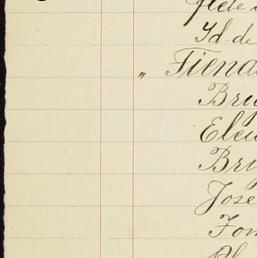 flete
Yd. de
„ Tiend
Bru
Eleu
Bry
Jose
Fon